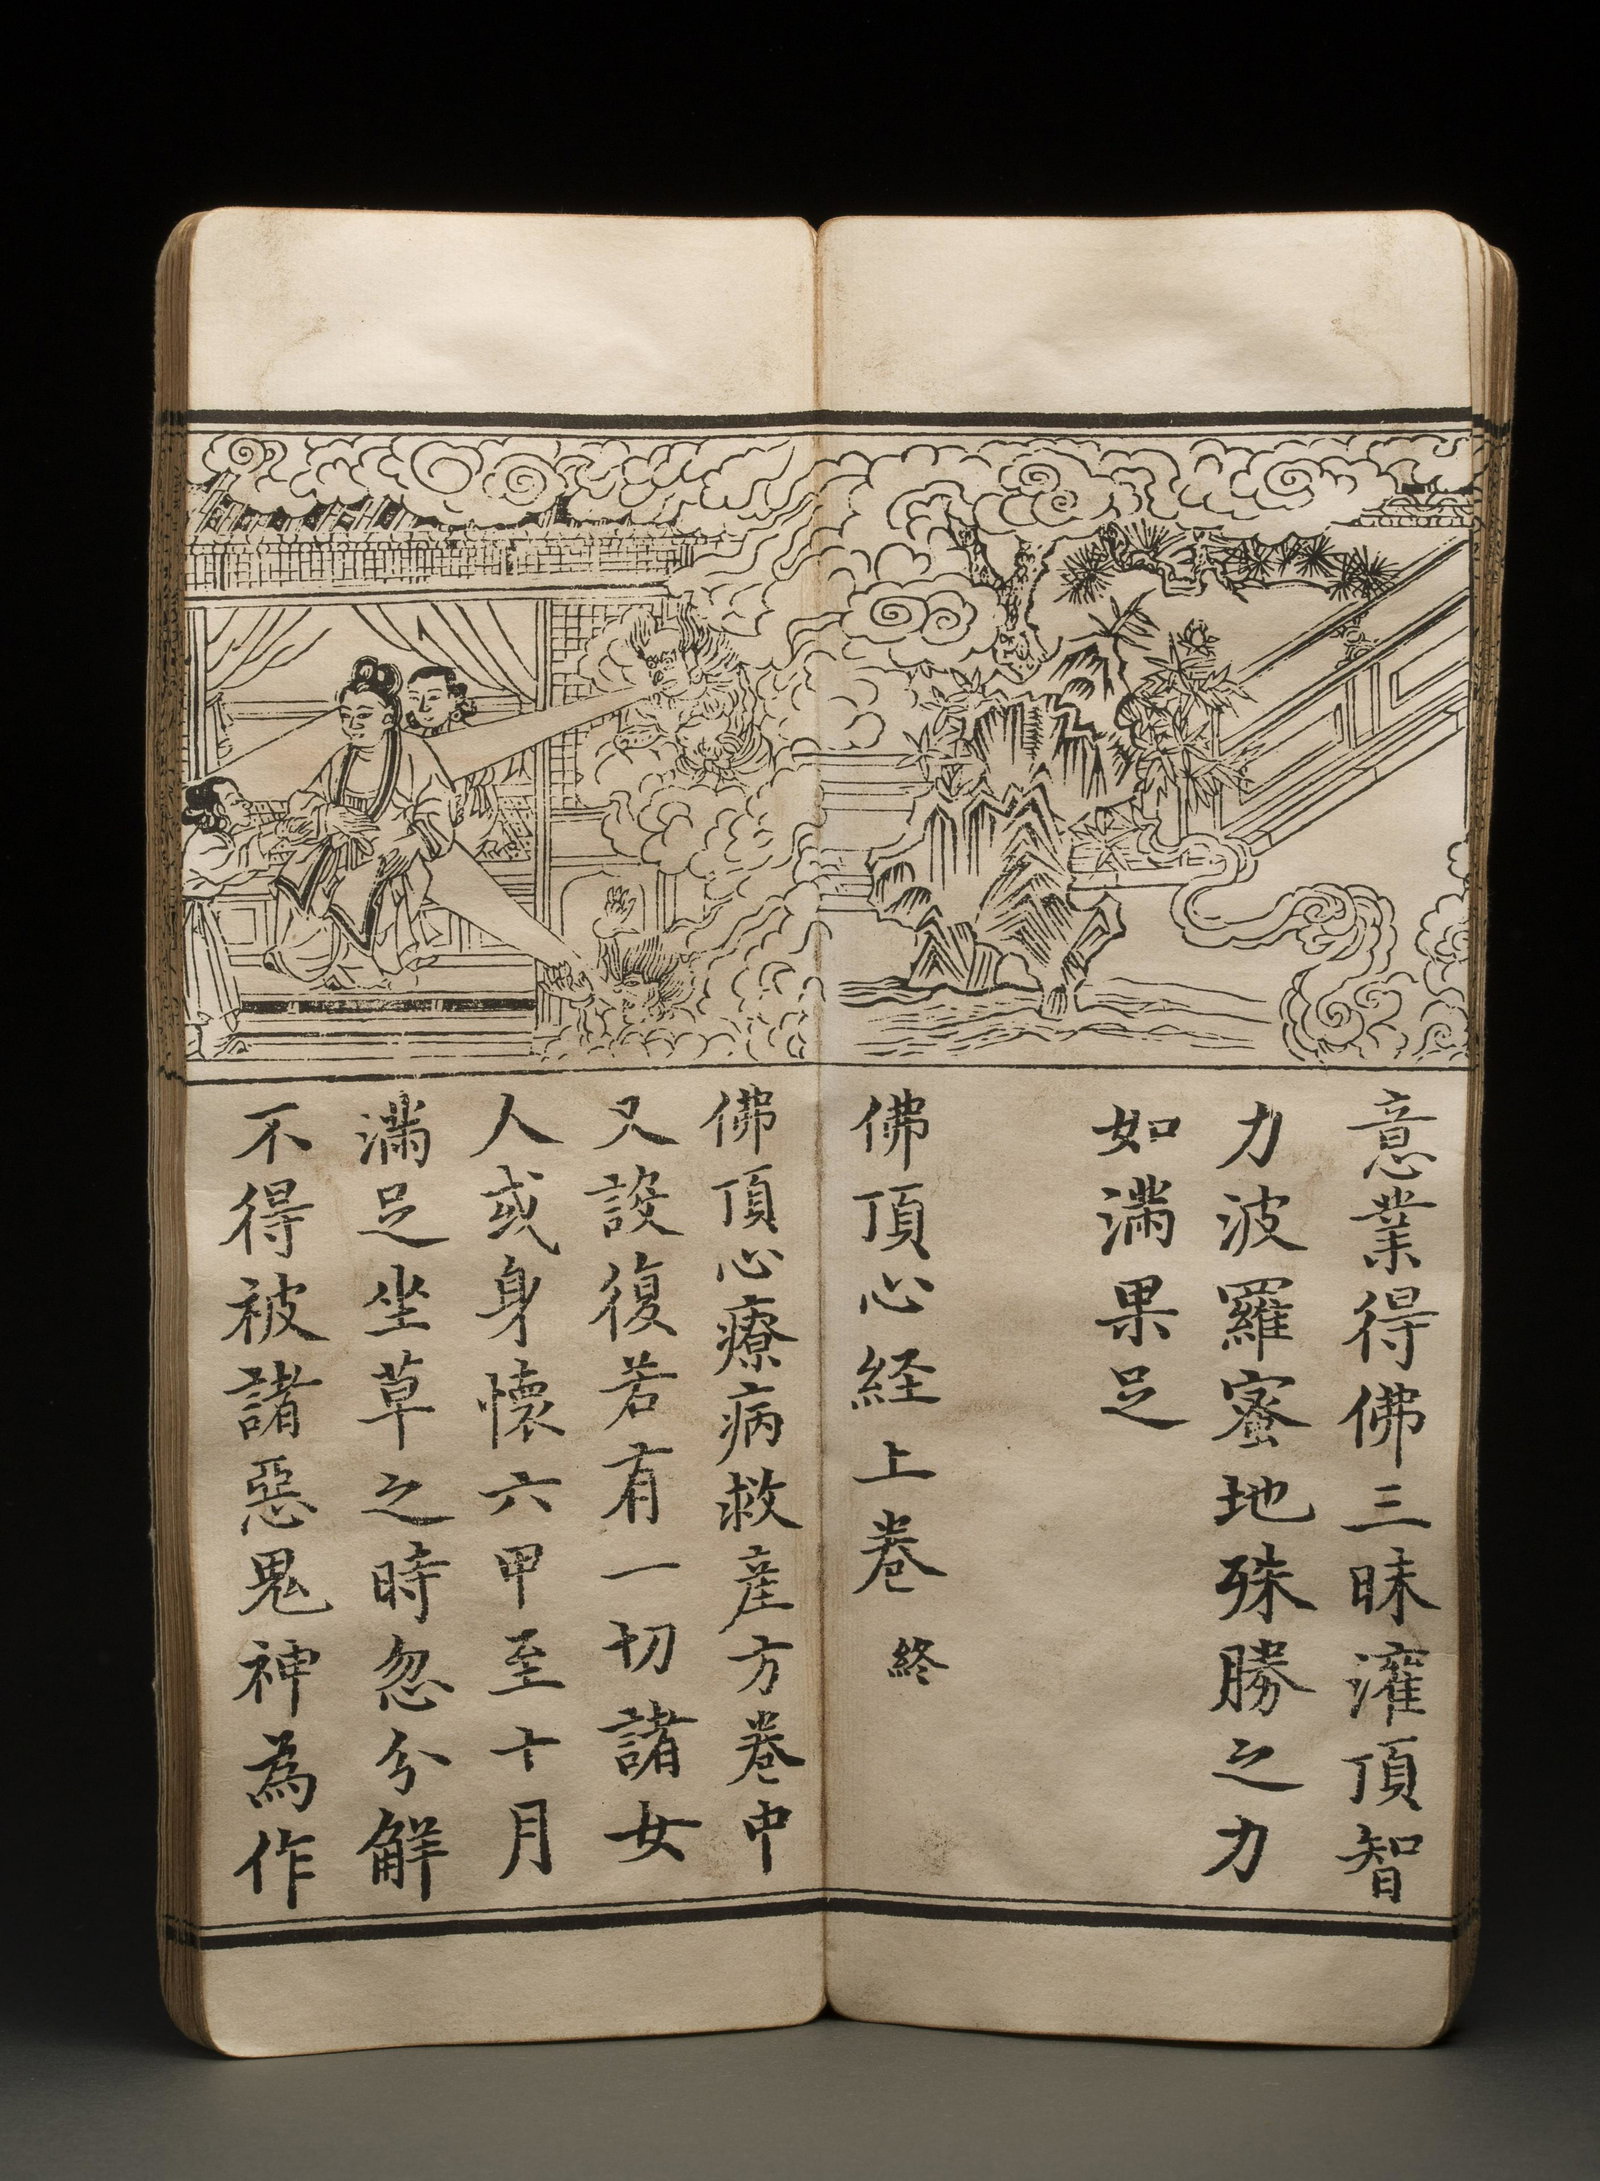 意業得佛三昧灌頂智
力波羅蜜地殊勝之力
如滿果足
佛頂心経上卷 終
佛頂心療病救產方卷中
又設復若有一切諸女
人或身懷六甲至十月
滿足坐草之時忽分解
不得被諸惡鬼神為作